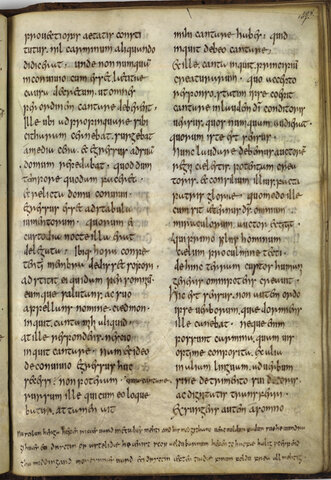 prouectioris aetatis consti
tutus. nil carminum aliquando
didicerat. unde nonnumquam
in conuiuio cum esset laetitiae
causa decretum. ut omnes
per ordinem cantare deberent.
ille ubi adpropinquare sibi
citharam cernebat. surgebat
a media cena. & egressus ad suam
domum repedabat. quod dum
tempore quodam faceret.
et relicta domu conuiuii.
egressus esset ad stabula
iumentorum. quorum ei
custodia nocte illa erat
delegata. ibique hora compe
tenti membra dedisset sopori.
adstitit ei quidam per somni
um. eumque salutans. ac suo
appellans nomine. cedmon.
inquit canta mihi aliquid.
at ille respondens. nescio
inquit cantare. nam et ideo
de conuiuio egressus huc
secessi. non poteram. cantare
rursum ille qui cum eo loque
batur. attamen ait
mihi cantare habes. quid
inquit debeo cantare.
& ille. canta inquit principium
creaturarum. quo accepto
responso. statim ipse coepit
cantare in laudem dei conditoris
uersus. quos numquam audierat.
quorum iste est sensus.
Nunc laudare debemus auctorem
regni caelestis. potentiam crea
toris. & consilium illius. facta
patris gloriae. quomodo ille
cum sit aeternus ds. omnium
miraculorum auctor extitit.
qui primo filiis hominum
caelum pro culmine tecti.
dehinc terram custos human
i generis omnipotens creauit.
Hic est sensus. non autem ordo
ipse uerborum. que dormiens
ille canebat. neque enim
possunt carmina. quamuis
optime composita. ex alia
in aliam linguam. ad uerbum
sine detrimento sui decoris
ac dignitatis transferri.
Exsurgens autem a somno